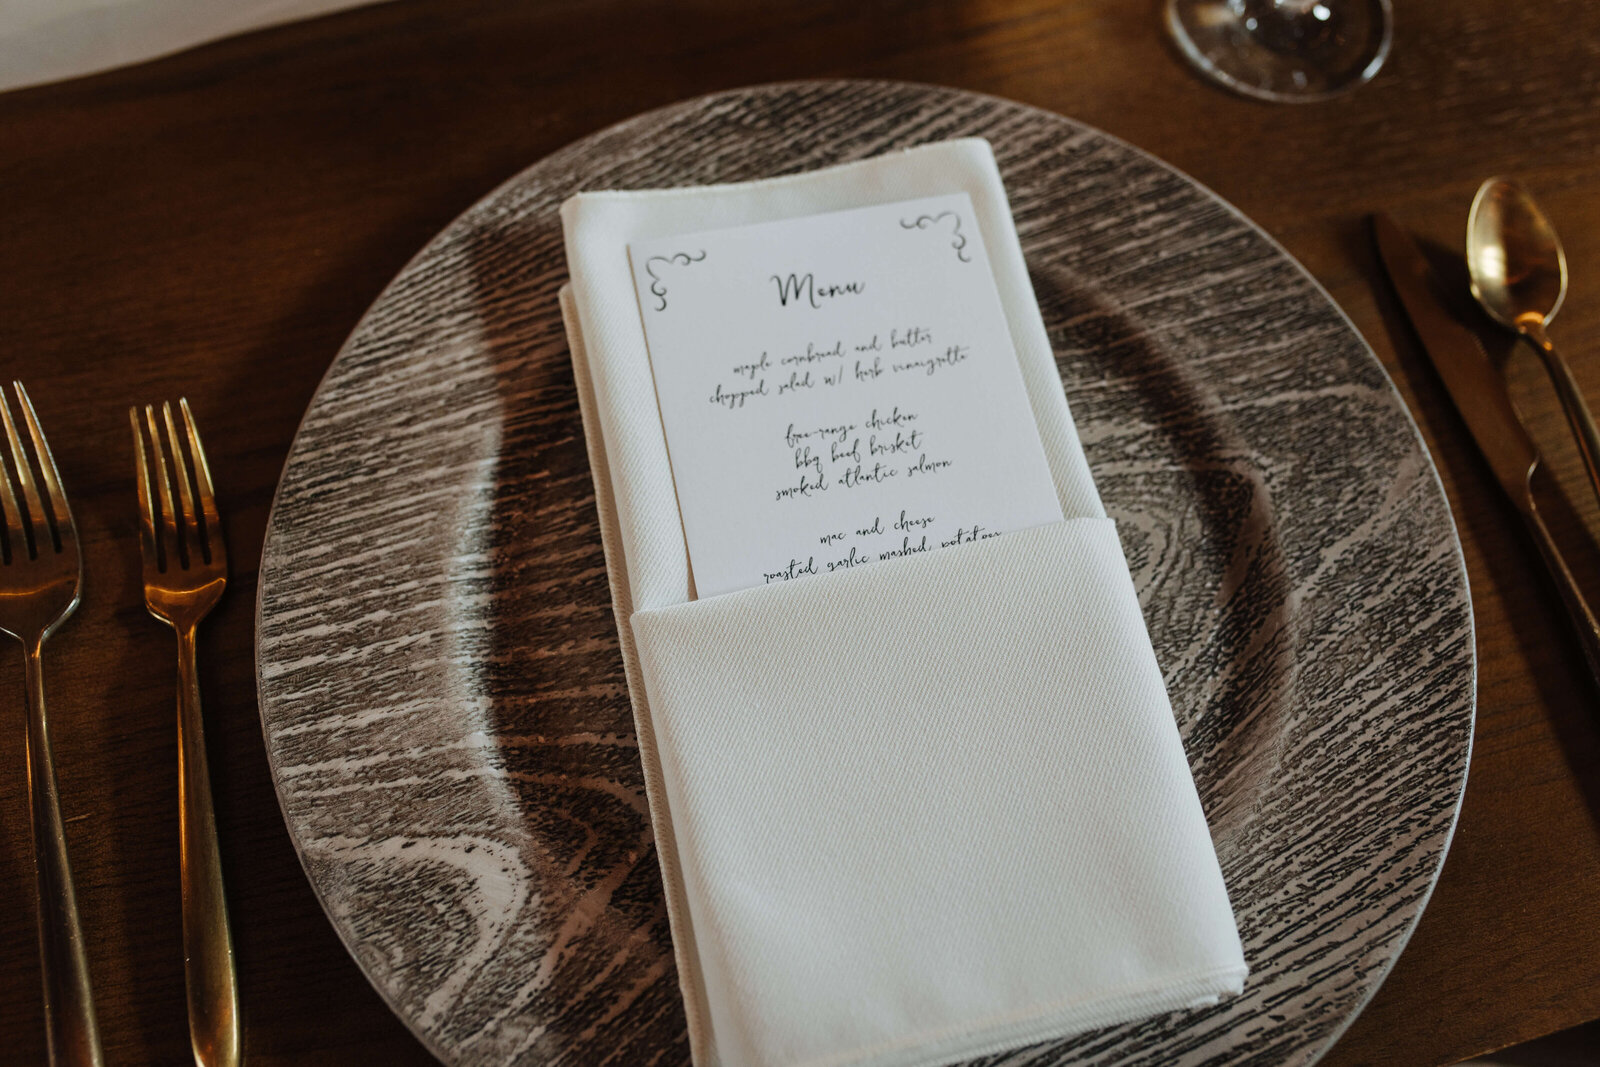 Menu
maple cornbread and butter
chopped salad w/ herb vinaigrette
free-range chicken
bbq beef brisket
smoked atlantic salmon
mac and cheese
roasted garlic mashed potatoes